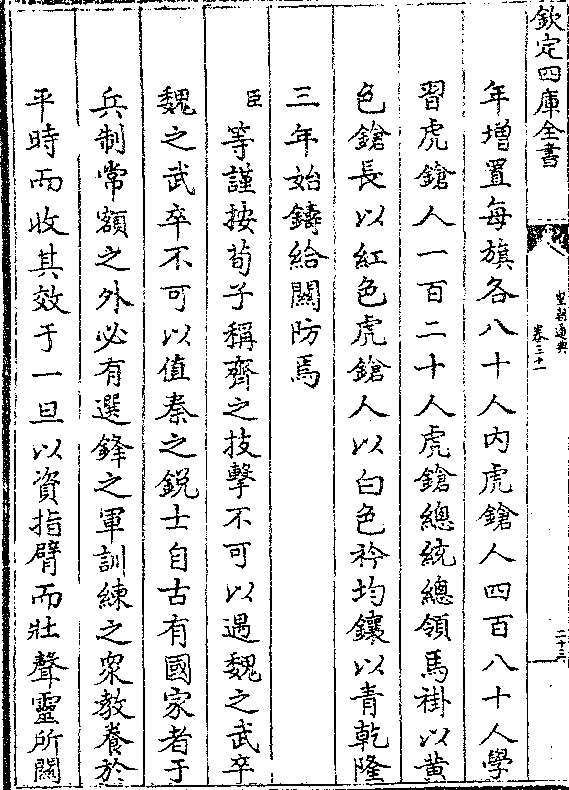 欽定四庫全書
皇朝通典
卷三十一
二十三
年增置每旗各八十人内虎鎗人四百八十人學
習虎鎗人一百二十人虎鎗總統總領馬褂以黄
色鎗長以紅色虎鎗人以白色衿均鑲以青乾隆
三年始鑄給關防焉
臣等謹按荀子稱齊之技擊不可以遇魏之武卒
魏之武卒不可以值秦之鋭士自古有國家者于
兵制常額之外必有選鋒之軍訓練之衆教養於
平時而收其效于一旦以資指臂而壯聲靈所關